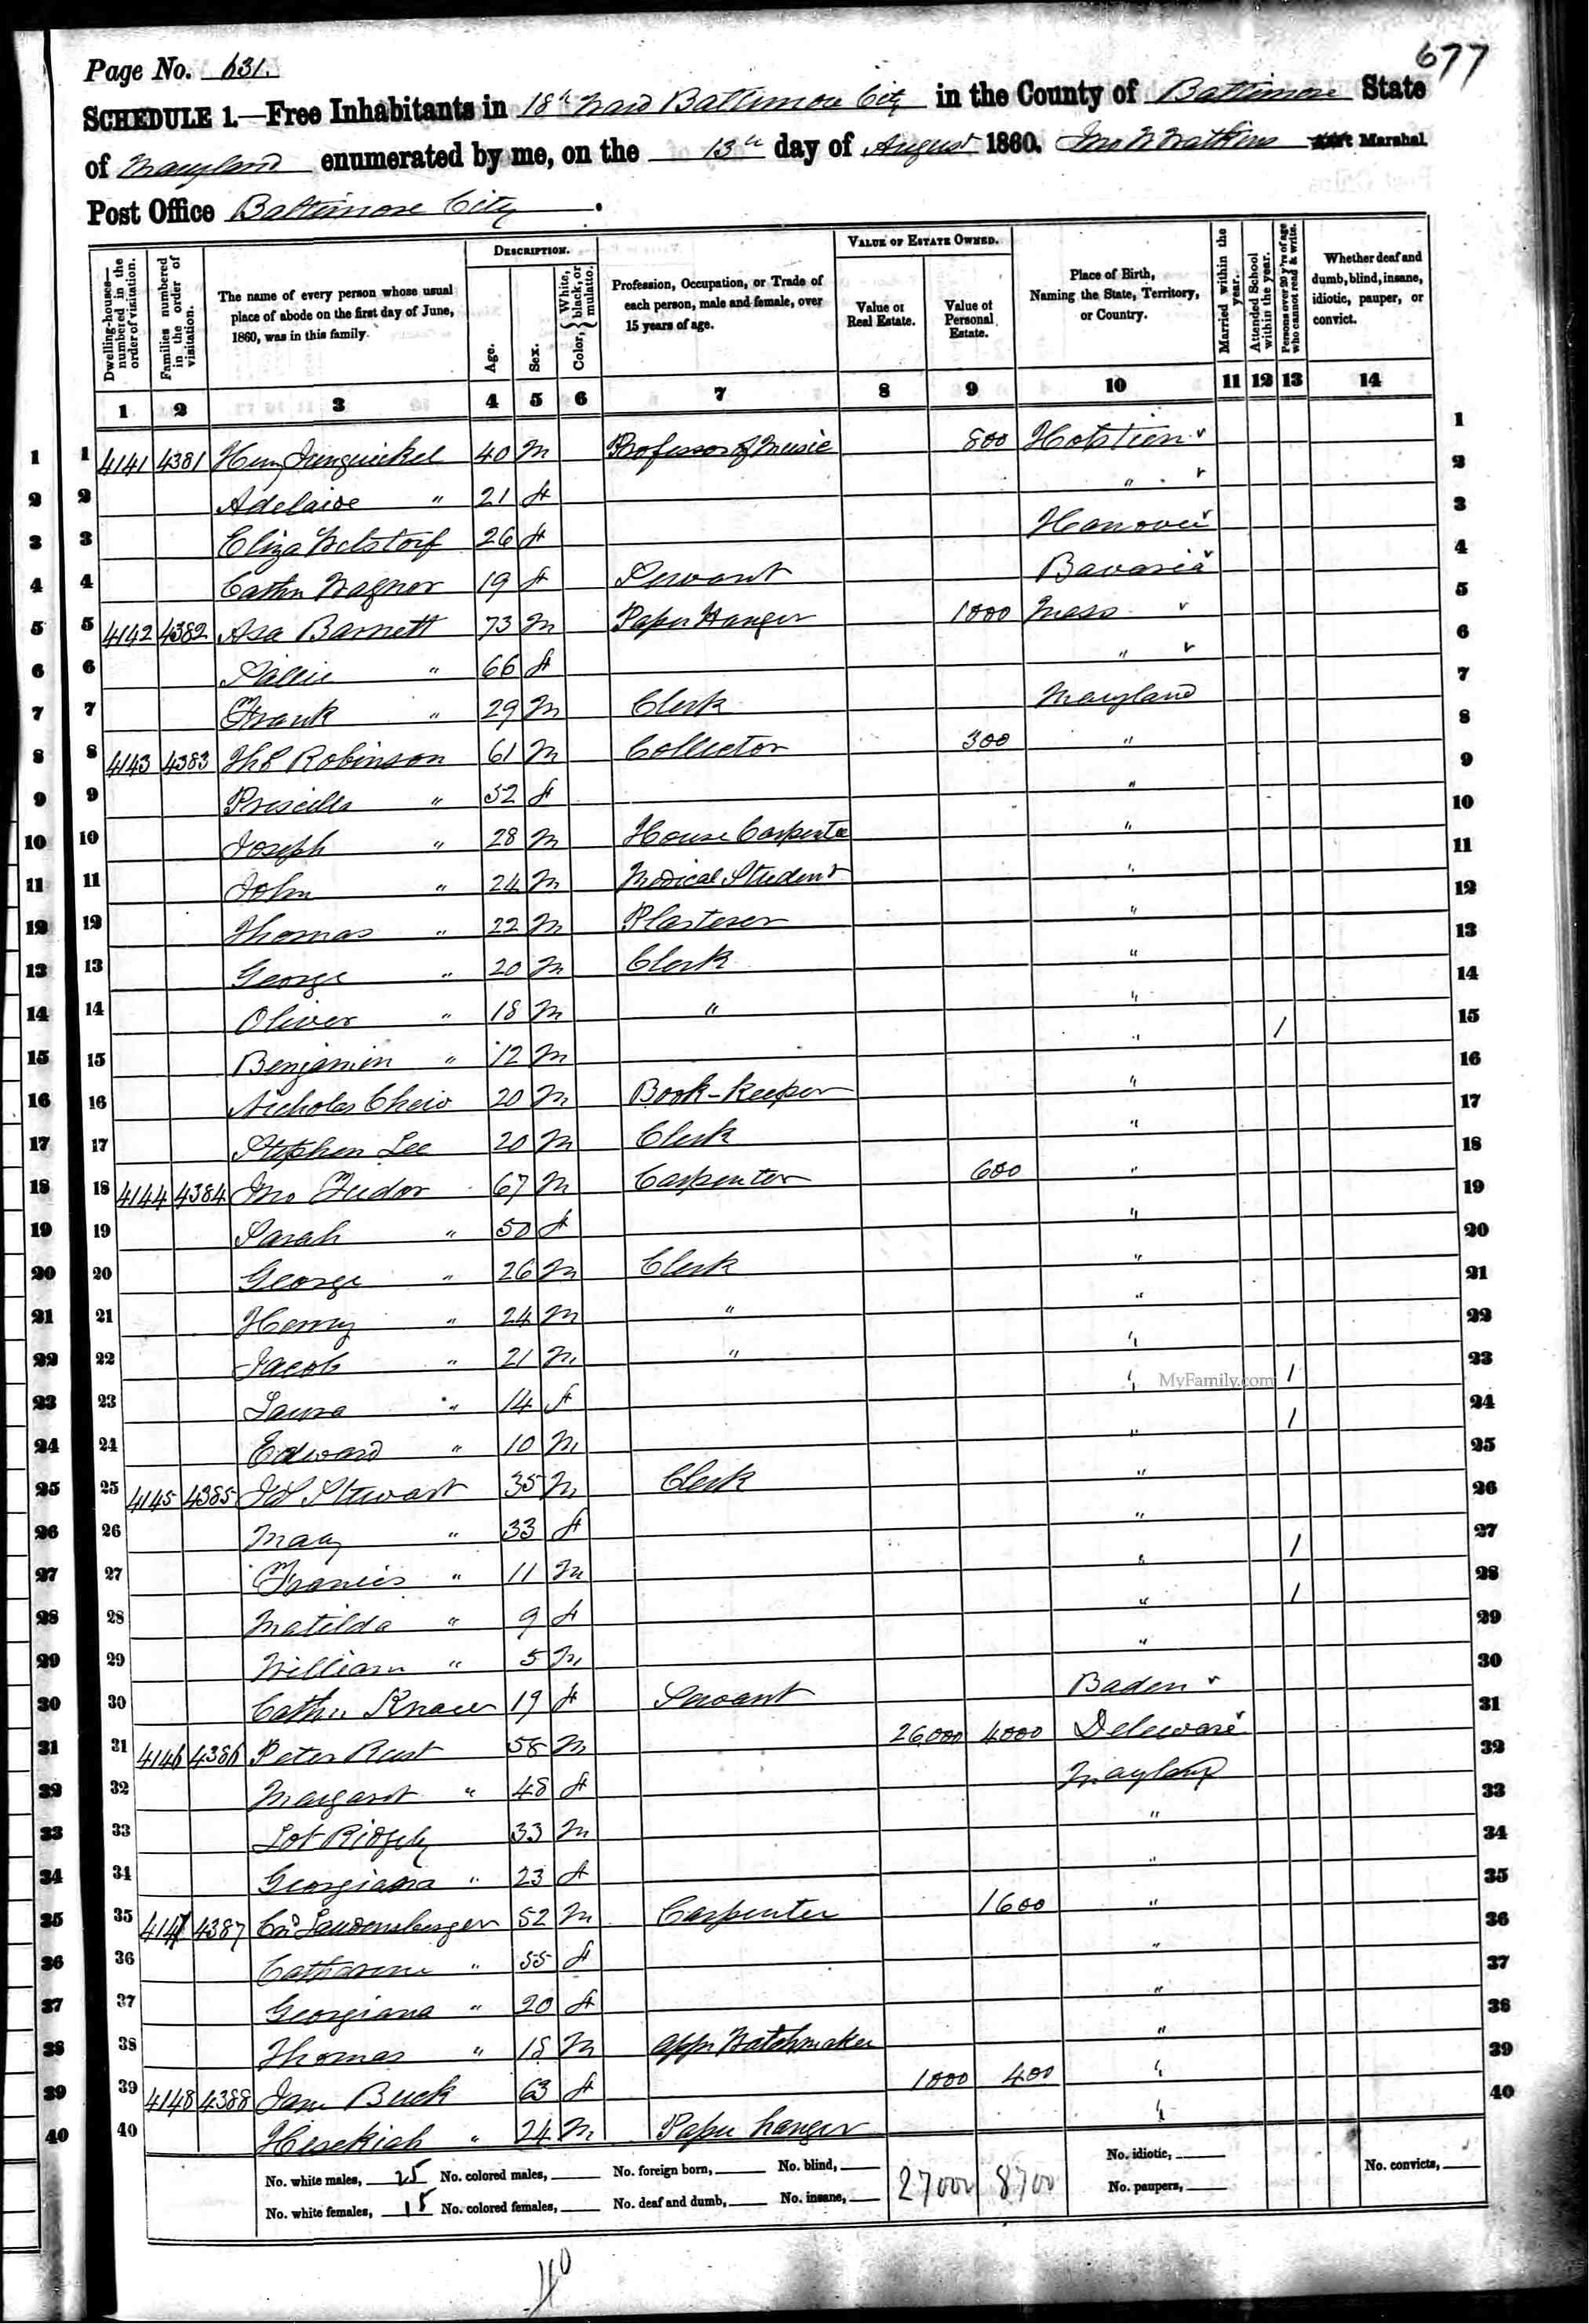 677
Page No. 631.
SCHEDULE 1.—Free Inhabitants in 18th Ward Baltimore City in the County of Baltimore State
of Maryland enumerated by me, on the 13th day of August 1860. Jno W Watkins Ass't Marshal.
Post Office Baltimore City.
DESCRIPTION. VALUE OF ESTATE OWNED.
Dwelling-houses—numbered in the order of visitation. Families numbered in the order of visitation. The name of every person whose usual place of abode on the first day of June, 1860, was in this family. Age. Sex. Color, { White, black, or mulatto. Profession, Occupation, or Trade of each person, male and female, over 15 years of age. Value of Real Estate. Value of Personal Estate. Place of Birth, Naming the State, Territory, or Country. Married within the year. Attended School within the year. Persons over 20 y'rs of age who cannot read & write. Whether deaf and dumb, blind, insane, idiotic, pauper, or convict.
1 2 3 4 5 6 7 8 9 10 11 12 13 14
1 1 4141 4381 40 M Professor of Music 800 Holstien 1
2 2 Adelaide " 21 f " 2
3 3 Eliza 26 f Hanover 3
4 4 Cathn Wagner 19 f Servant Bavaria 4
5 5 4142 4382 Asa Barnett 73 M Paper Hanger 1000 Mass 5
6 6 Sallie " 66 f " 6
7 7 Frank " 29 M Clerk Maryland 7
8 8 4143 4383 Robinson 61 M Collector 300 " 8
9 9 Priscilla " 52 f " 9
10 10 Joseph " 28 M House Carpenter " 10
11 11 John " 24 M Medical Student " 11
12 12 Thomas " 22 M Plasterer " 12
13 13 George " 20 M Clerk " 13
14 14 Oliver " 18 M " " 14
15 15 Benjamin " 12 M " 1 15
16 16 Nicholas Chew 20 M Book-keeper " 16
17 17 Stephen Lee 20 M Clerk " 17
18 18 4144 4384 Jno Tudor 67 M Carpenter 600 " 18
19 19 Sarah " 50 f " 19
20 20 George " 26 M Clerk " 20
21 21 Henry " 24 M " " 21
22 22 Jacob " 21 M " " 22
23 23 Laura " 14 f " MyFamily.com 1 23
24 24 Edward " 10 M " 1 24
25 25 4145 4385 Stewart 35 M Clerk " 25
26 26 Mary " 33 f " 26
27 27 Francis " 11 M " 1 27
28 28 Matilda " 9 f " 1 28
29 29 William " 5 M " 29
30 30 19 f Servant Baden 30
31 31 4146 4386 Peter Rust 58 M 26000 4000 Deleware 31
32 32 Margaret " 48 f Maryland 32
33 33 Lot Ridgely 33 M " 33
34 34 Georgiana " 23 f " 34
35 35 4147 4387 Laudensberger 52 M Carpenter 1600 " 35
36 36 Catharine " 55 f " 36
37 37 Georgiana " 20 f " 37
38 38 Thomas " 18 M appr Watchmaker " 38
39 39 4148 4388 Jane Buck 63 f 1000 400 " 39
40 40 Hesekiah " 24 M Paper hanger " 40
No. white males, 25 No. colored males, No. foreign born, No. blind, 27000 8700 No. idiotic, No. convicts,
No. white females, 15 No. colored females, No. deaf and dumb, No. insane, No. paupers,
40